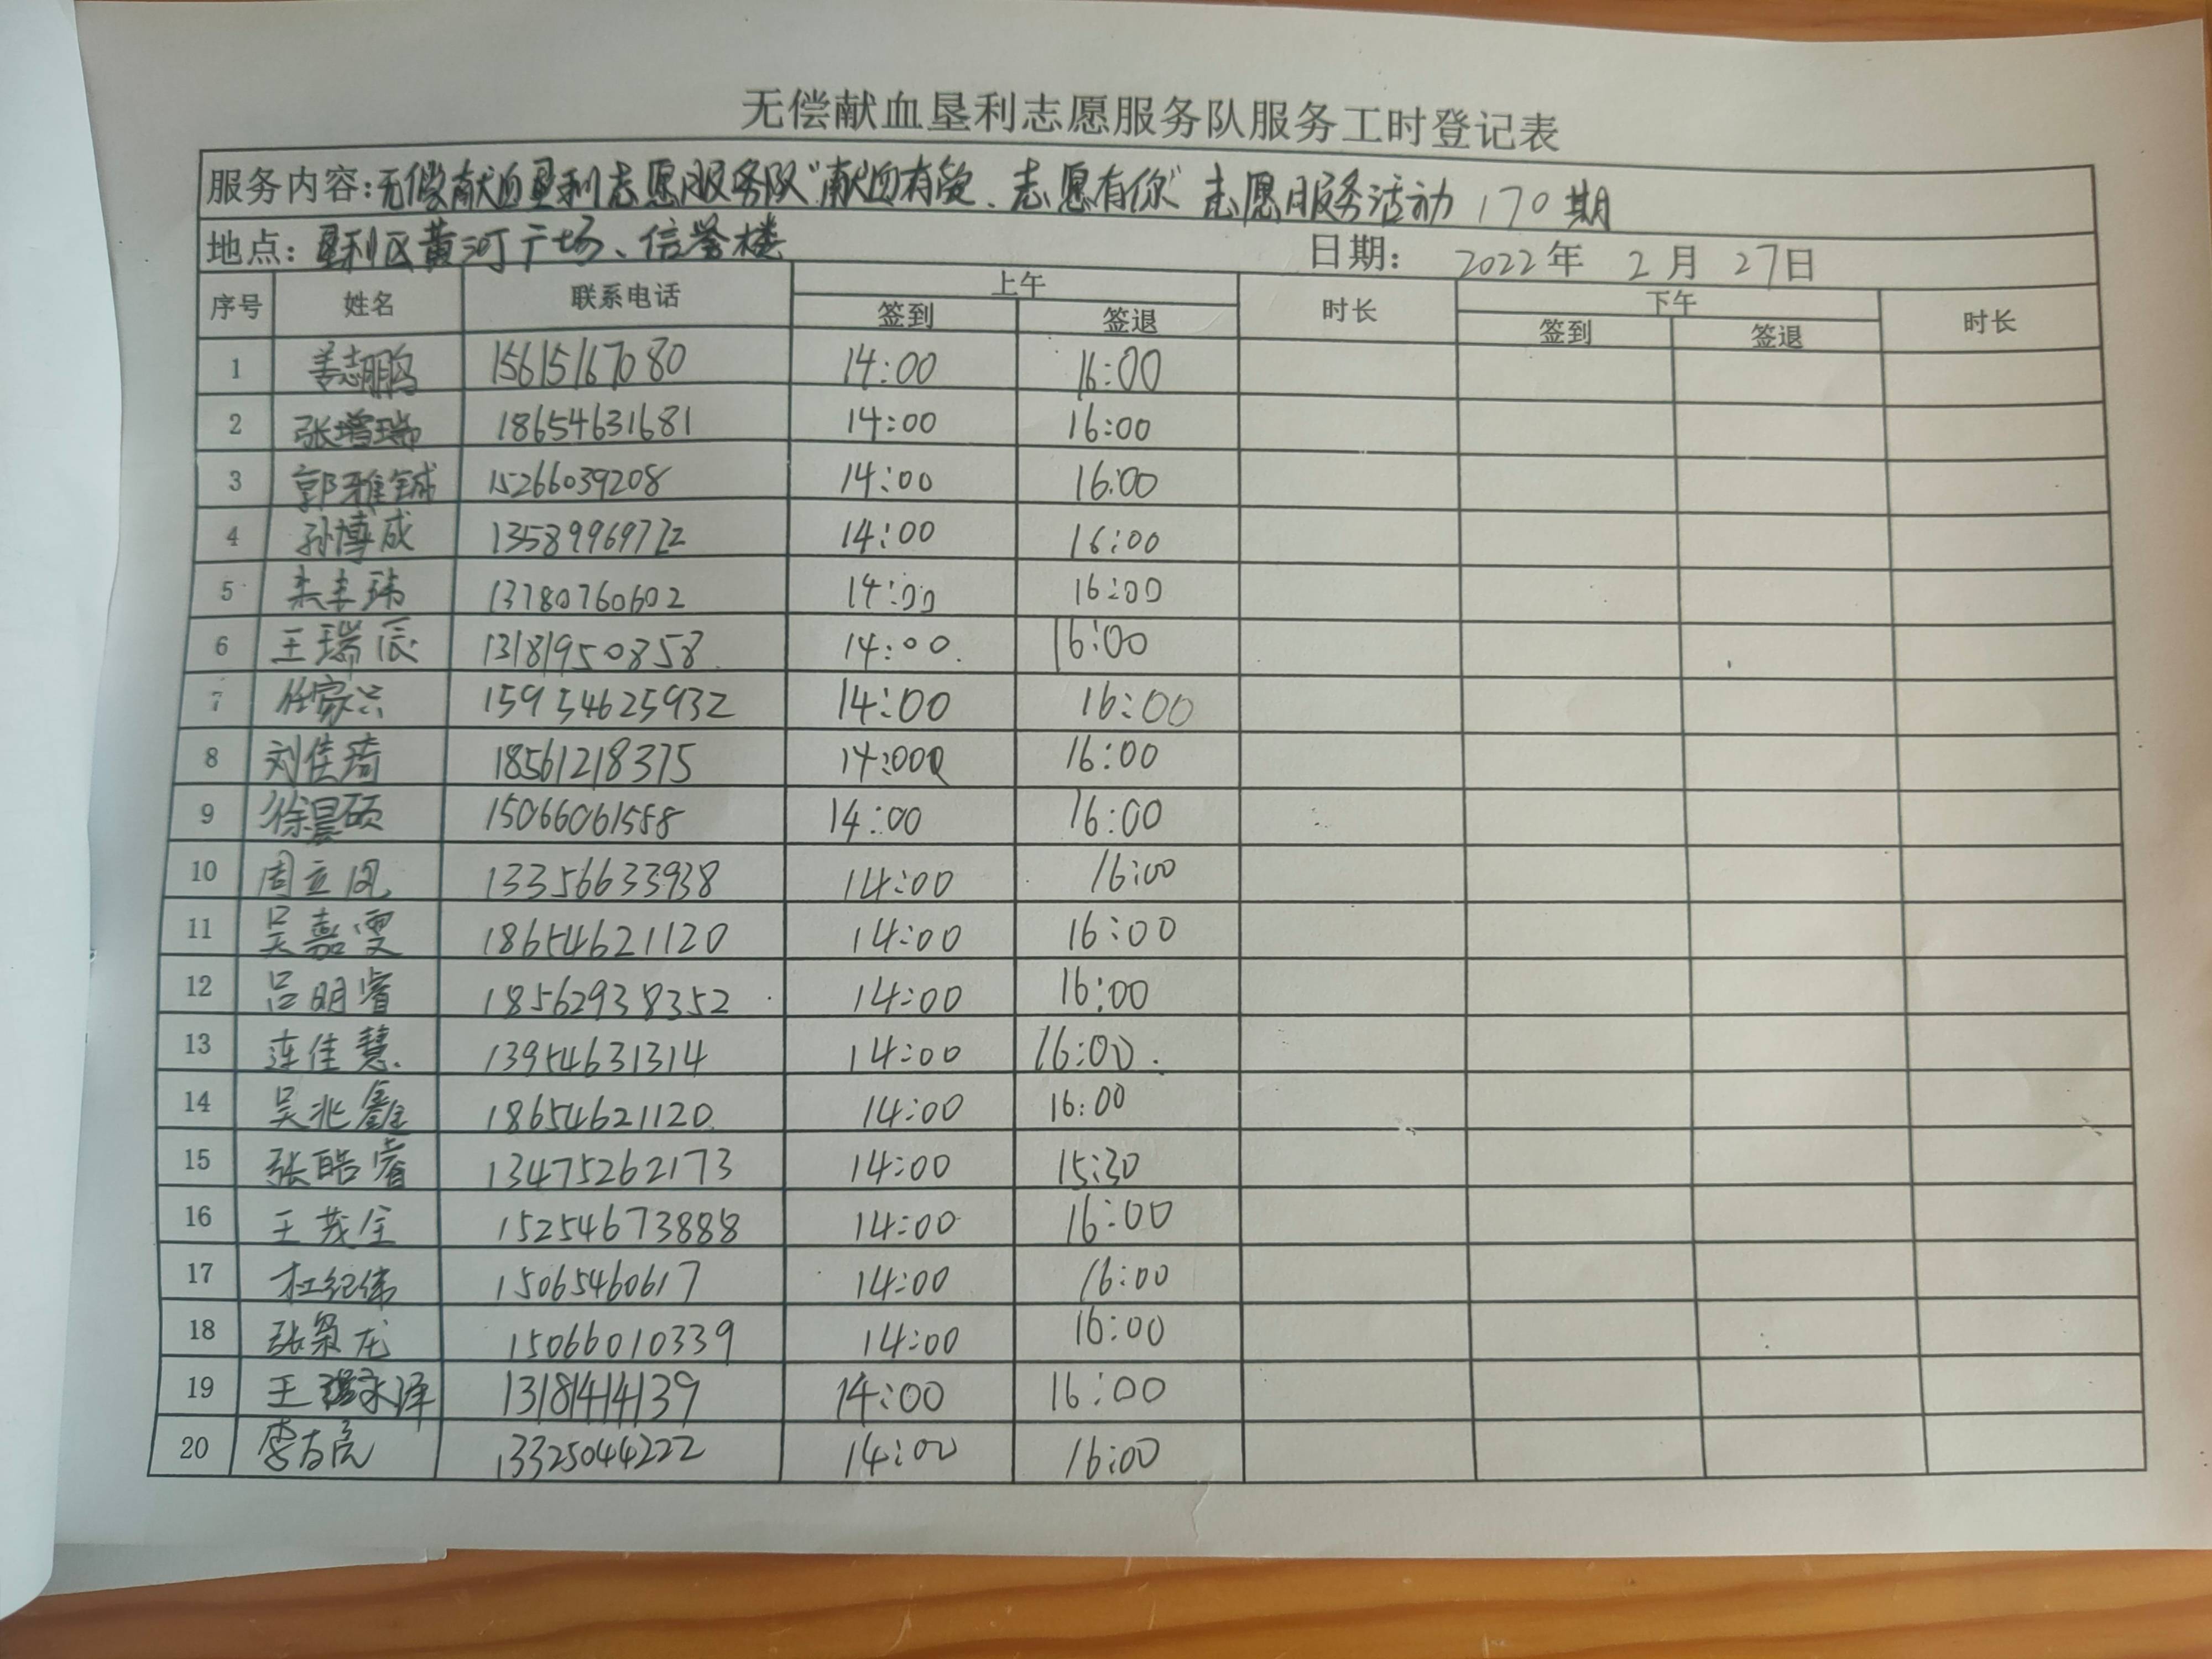 无偿献血垦利志愿服务队服务工时登记表
服务内容:无偿献血垦利志愿服务队“献血有爱、志愿有你”志愿服务活动170期
地点:垦利区黄河广场、信誉楼 日期: 2022年 2月 27日
序号 姓名 联系电话 上午 时长 下午 时长
签到 签退 签到 签退
1 姜志鹏 15615167080 14:00 16:00
2 张增瑞 18654631681 14:00 16:00
3 郭雅铖 15266039208 14:00 16:00
4 孙博成 13589969772 14:00 16:00
5 13780760602 14:00 16:00
6 王瑞辰 13181950858 14:00 16:00
7 任家兴 15954625932 14:00 16:00
8 刘佳琦 18561218375 14:000 16:00
9 徐晨硕 15066061558 14:00 16:00
10 周立风 13356633938 14:00 16:00
11 吴嘉雯 18654621120 14:00 16:00
12 吕明睿 18562938352 14:00 16:00
13 连佳慧 13954631314 14:00 16:00
14 吴兆鑫 18654621120 14:00 16:00
15 张皓睿 13475262173 14:00 15:30
16 王茂全 15254673888 14:00 16:00
17 杜纪伟 15065460617 14:00 16:00
18 张枭龙 15066010339 14:00 16:00
19 王永泽 13181414139 14:00 16:00
20 李方亮 13325044222 14:00 16:00